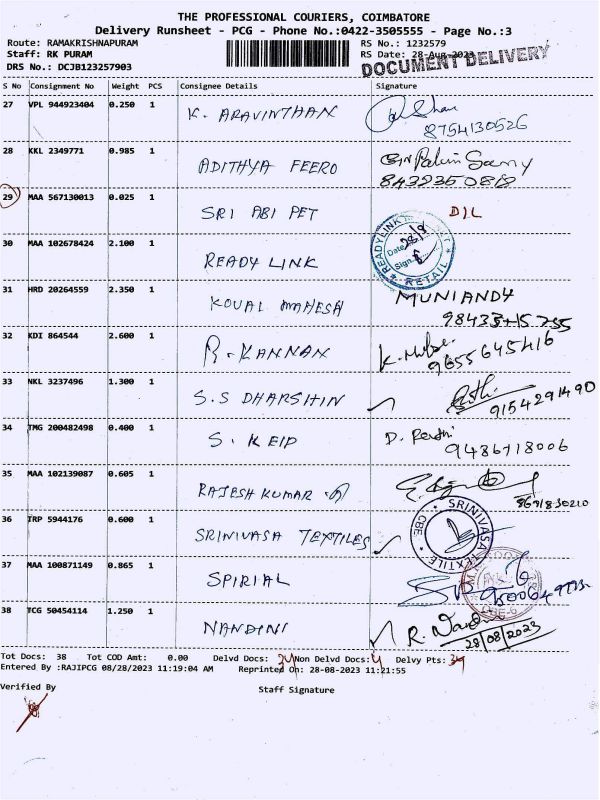 THE PROFESSIONAL COURIERS, COIMBATORE
Delivery Runsheet - PCG - Phone No.:0422-3505555 - Page No.:3
Route: RAMAKRISHNAPURAM RS No.: 1232579
Staff: RK PURAM RS Date: 28-Aug-2023
DRS No.: DCJB123257903 DOCUMENT DELIVERY
S No Consignment No Weight PCS Consignee Details Signature
27 VPL 944923404 0.250 1 K. ARAVINTHAN
8754130526
28 KKL 2349771 0.985 1 ADITHYA FEERO
29 MAA 567130013 0.025 1 SRI ABI PET D/L
30 MAA 102678424 2.100 1 READY LINK READYLINK Date: 28/8 Sign. RETAIL
31 HRD 20264559 2.350 1 KOVAI MAHESH MUNIANDY
32 KDI 864544 2.600 1 R. KANNAN
9655645416
33 NKL 3237496 1.300 1 S.S DHARSHIN
9154291490
34 TMG 200482498 0.400 1 S. KEIP D.
9486718006
35 MAA 102139087 0.605 1 RAJESH KUMAR
36 TRP 5944176 0.600 1 SRINIVASA TEXTILES SRINIVASA TEXTILE CBE
37 MAA 100871149 0.865 1 SPIRIAL CBE-6
38 TCG 50454114 1.250 1 NANDINI R.
28/08/2023
Tot Docs: 38 Tot COD Amt: 0.00 Delvd Docs: 34 Non Delvd Docs: 4 Delvy Pts: 34
Entered By :RAJIPCG 08/28/2023 11:19:04 AM Reprinted On: 28-08-2023 11:21:55
Verified By Staff Signature